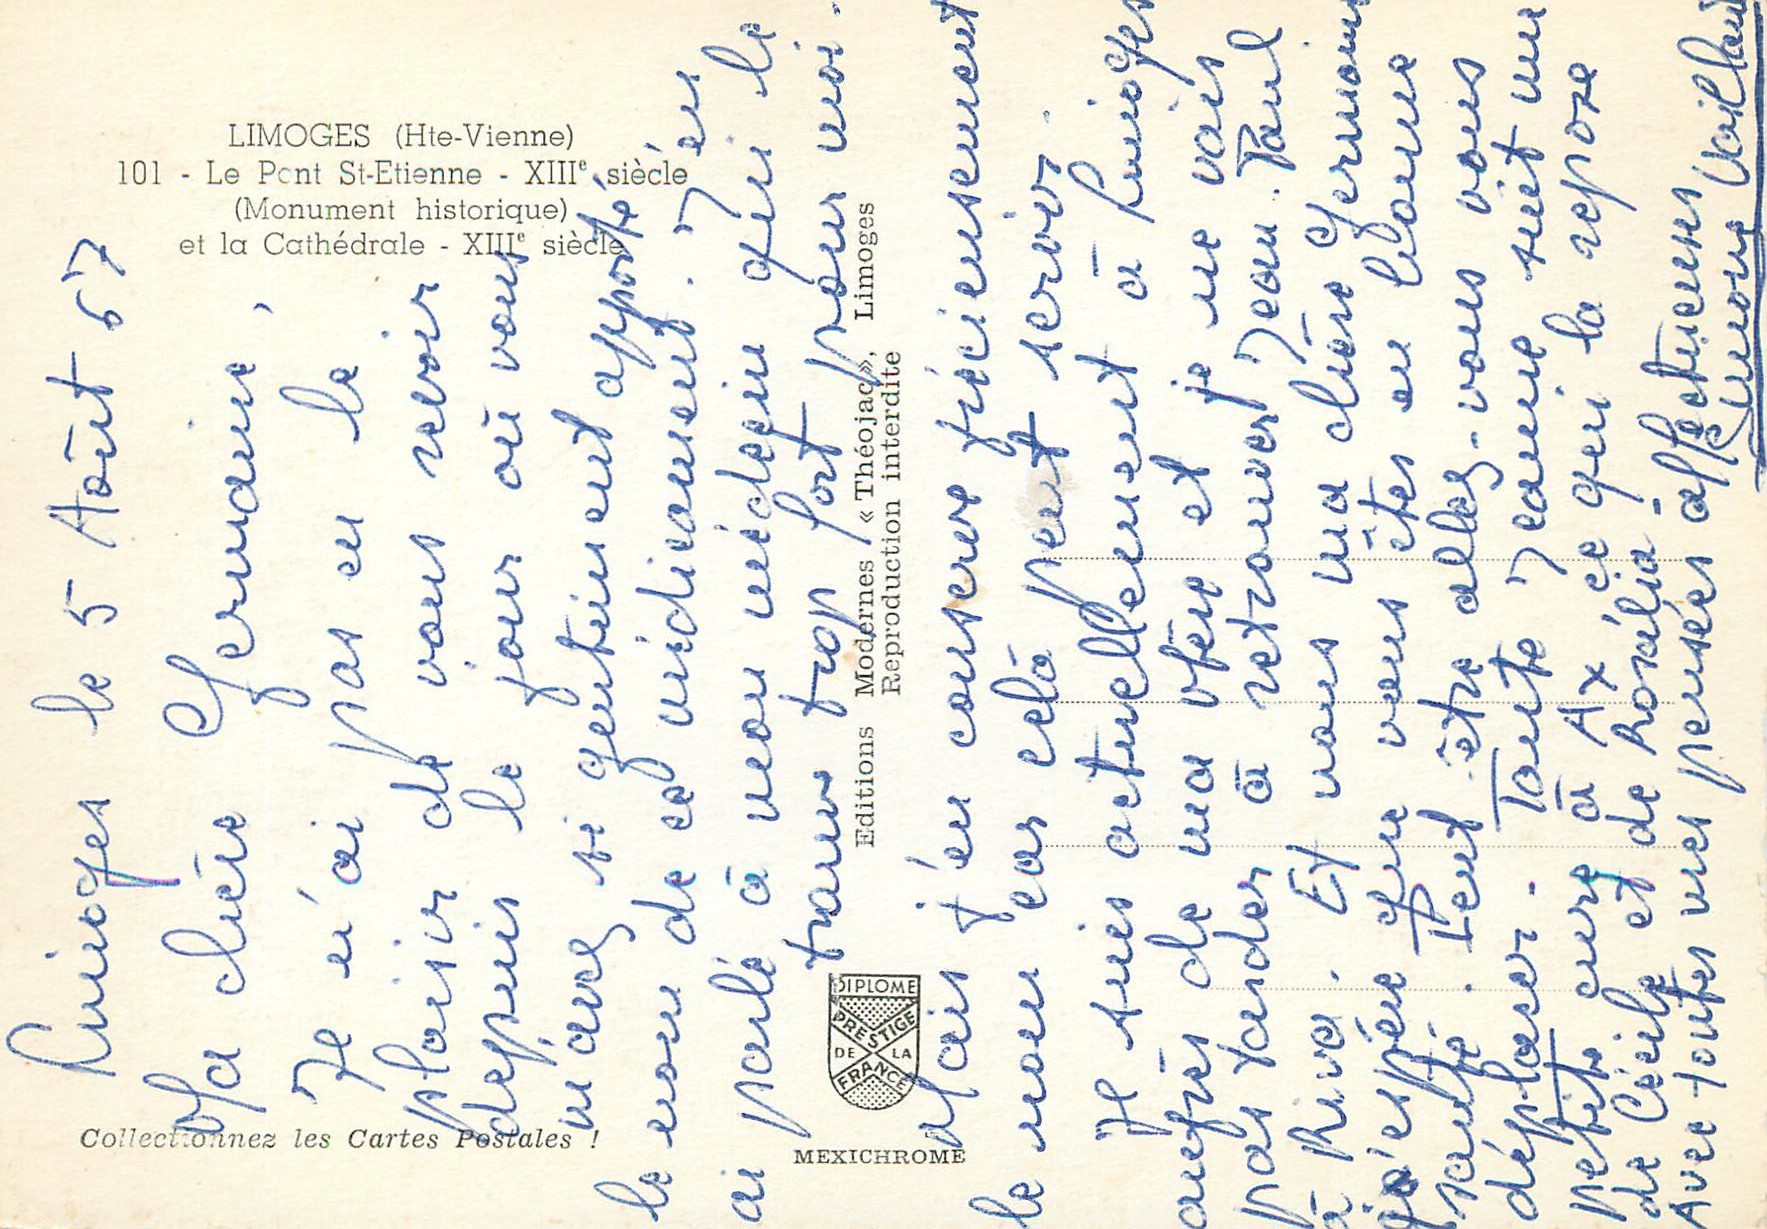 LIMOGES (Hte-Vienne)
101 - Le Pont St-Etienne - XIIIe siècle
(Monument historique)
et la Cathédrale - XIIIe siècle
Collectionnez les Cartes Postales !
Editions Modernes « Théojac », Limoges
Reproduction interdite
DIPLOME
PRESTIGE
DE LA
FRANCE
MEXICHROME
Limoges le 5 Août 67
Ma chère Germaine,
Je n'ai pas eu le
plaisir de vous revoir
depuis le jour où vous
m'avez si gentiment apporté
le nom de ce médicament. J'en
ai parlé à mon médecin qui le
trouve trop fort pour moi.
Mais j'en conserve précieusement
le nom car cela peut servir.
Je suis actuellement à Limoges
auprès de ma mère et je ne vais
pas tarder à retrouver Jean. Paul
à Riva. Et vous ma chère Germaine
j'espère que vous êtes en bonne
santé. Peut-être allez-vous vous
déplacer. Tante Jeanne suit une
petite cure à Ax ce qui la repose
de Cécile et de Rosélia -
Avec toutes mes pensées affectueuses
Simone Vaillant